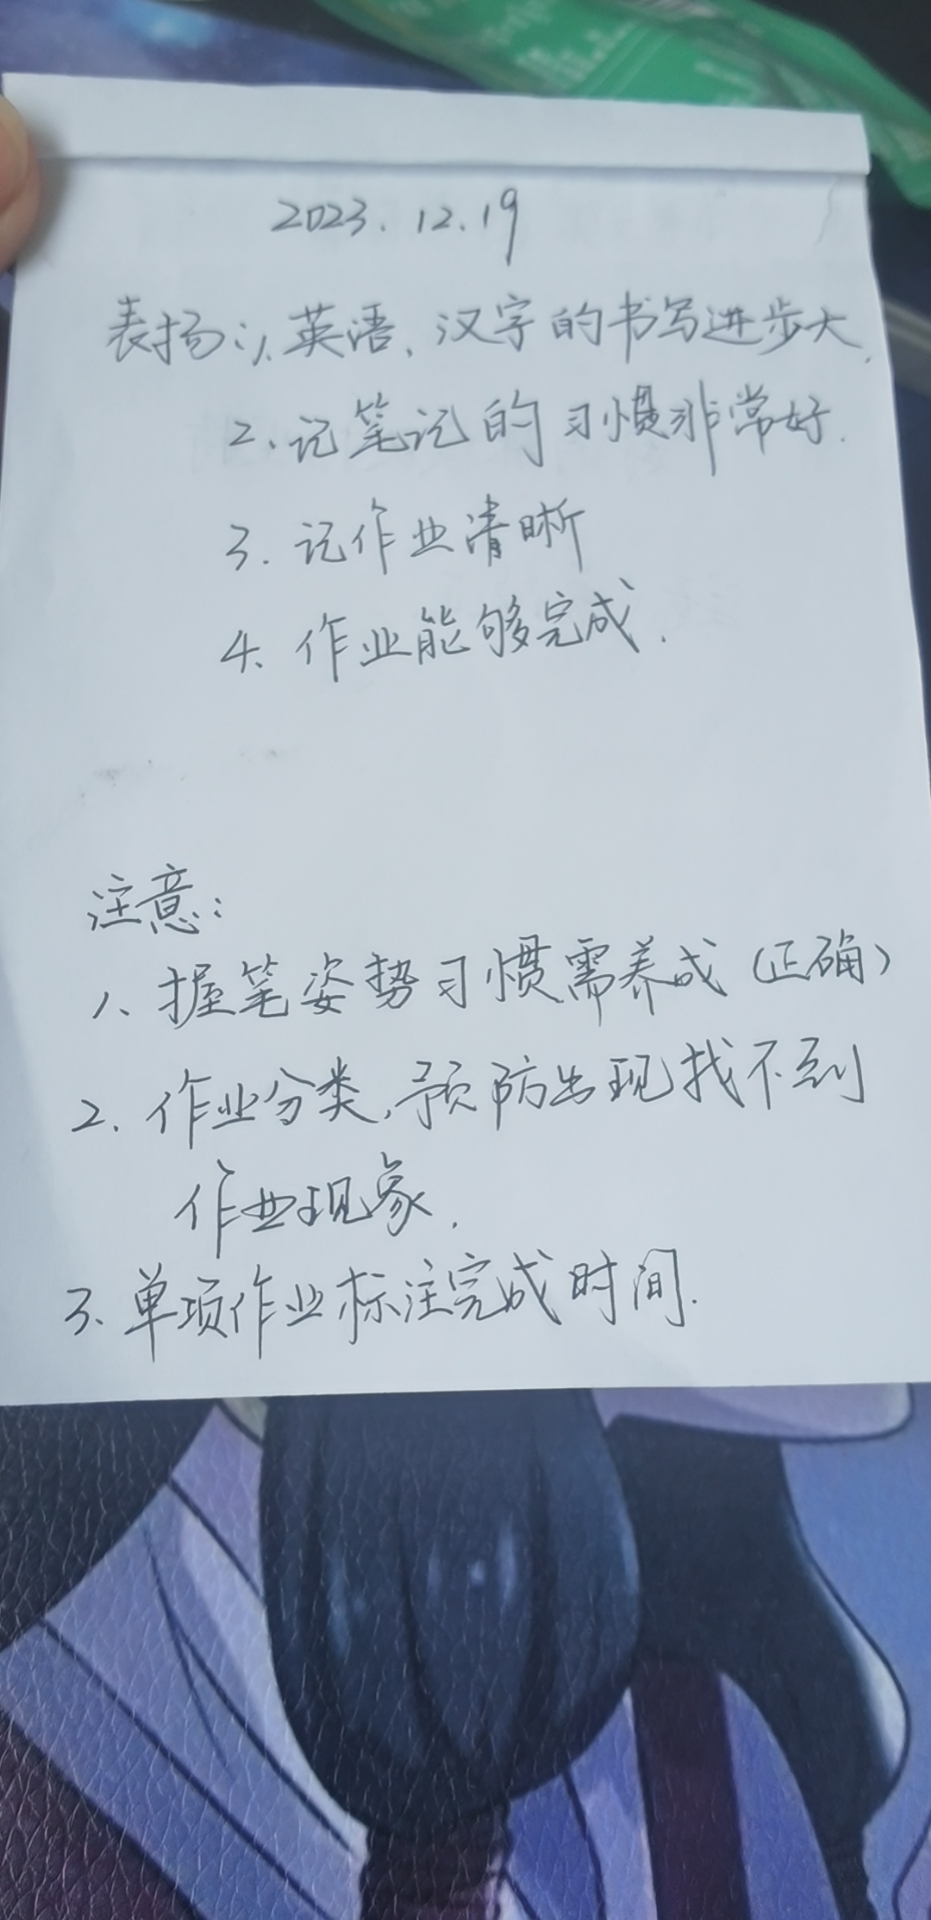 2023.12.19
表扬:1、英语、汉字的书写进步大.
2、记笔记的习惯非常好.
3. 记作业清晰
4、作业能够完成.
注意:
1、握笔姿势习惯需养成(正确)
2、作业分类,预防出现找不到
作业现象.
3、单项作业标注完成时间.